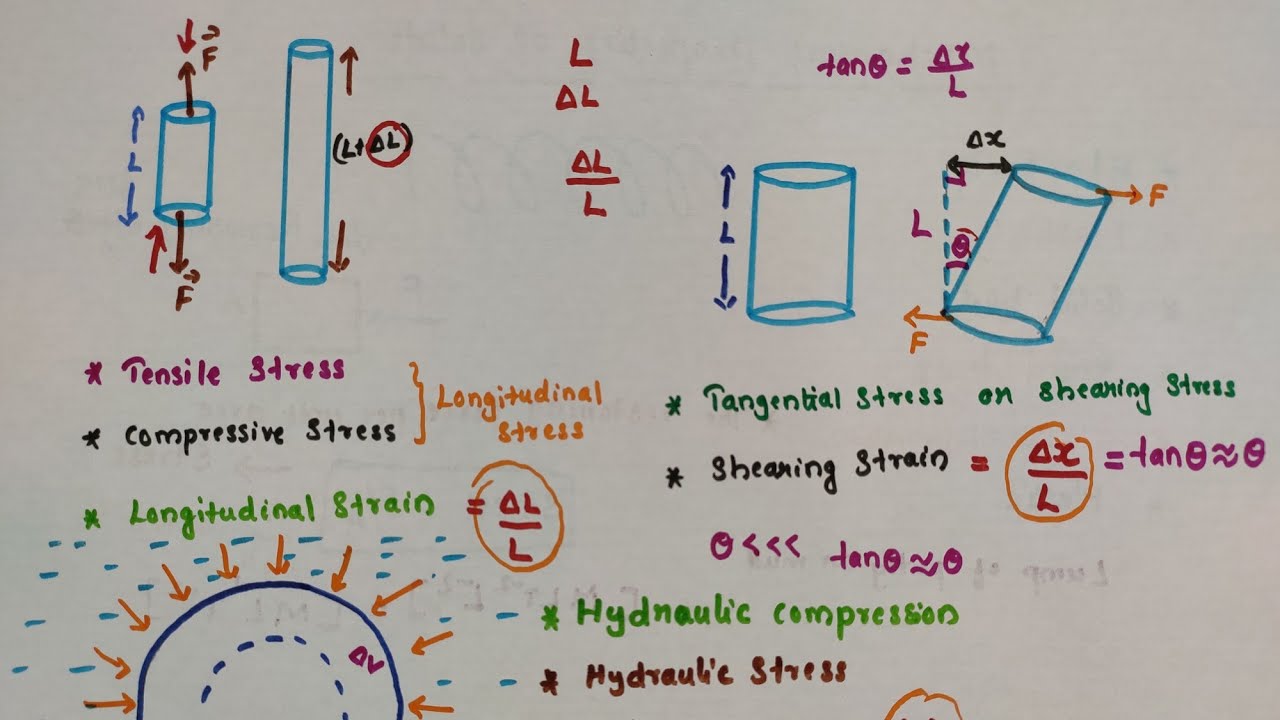 F
L
F
(L+ΔL)
L
ΔL
ΔL/L
* Tensile Stress
* Compressive Stress
Longitudinal
Stress
* Longitudinal Strain = ΔL/L
tanθ = Δx/L
L
Δx
L
θ
F
F
* Tangential Stress or Shearing Stress
* Shearing Strain = Δx/L = tanθ≈θ
θ<<< tanθ≈θ
ΔV
* Hydraulic compression
* Hydraulic Stress